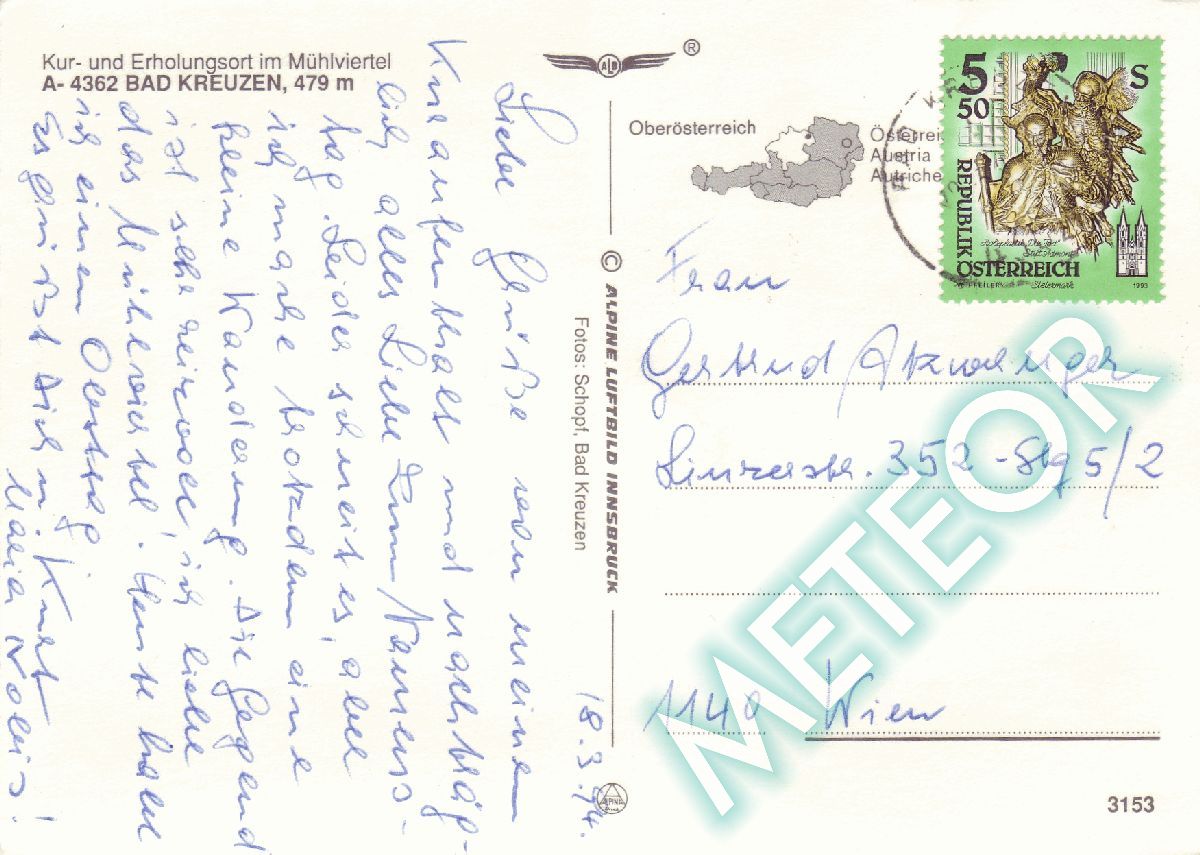 Kur- und Erholungsort im Mühlviertel
A- 4362 BAD KREUZEN, 479 m
ALB ®
Oberösterreich
Österrei
Austria
Autriche
5 50 S
REPUBLIK
ÖSTERREICH
Stift Admont
Steiermark
1993
18.3.94.
Liebe Grüße von meinem
Kuraufenthalt und nachträg-
lich alles Liebe zum Namens-
tag. Leider schneit es, aber
ich mache trotzdem eine
kleine Wanderung. Die Gegend
ist sehr reizvoll, ich liebe
das Mühlviertel. Heute habe
ich einen Obsttag
Es grüßt Dich m. Kurt
Maria
© ALPINE LUFTBILD INNSBRUCK
Fotos: Schopf, Bad Kreuzen
Frau
Gertrud Atzwanger
Linzerstr. 352 - Stg 5/2
1140 Wien
METEOR
ALPINA
3153